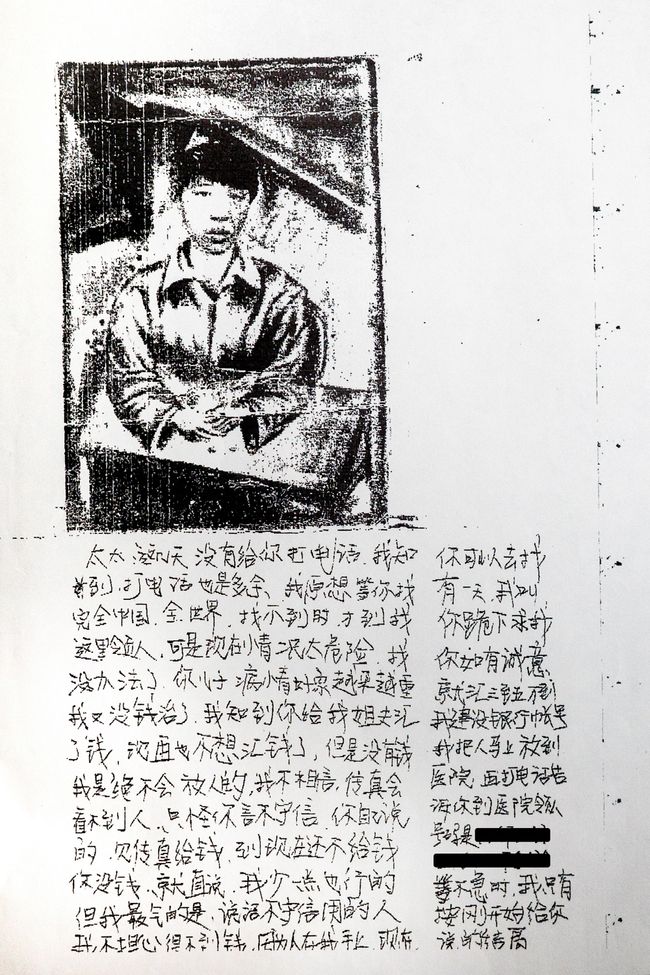 太太.这几天没有给你打电话.我知
到.打电话也是多余.我原想等你找
完全中国.全世界.找不到时.才到我
这里领人.可是现在情况太危险.我
没办法了.你儿子病情好象越来越重
我又没钱治了.我知到你给我姐夫汇
了钱.现再也不想汇钱了.但是没有钱
我是绝不会放人的.我不相信.传真会
看不到人.只怪你言不守信.你自己说
的.见传真给钱.到现在还不给钱
你没钱.就直说.我少一点也行的
但我最气的是.说话不守信用的人
我不担心得不到钱.因为人在我手上.现在
你可以去找
有一天.我叫
你跪下求我
你如有诚意.
就汇三百五
我建设银行帐号
我把人马上放到
医院.再打电话告
诉你到医院领人
号码是
等不急时.我只有
按刚开始给你
说的